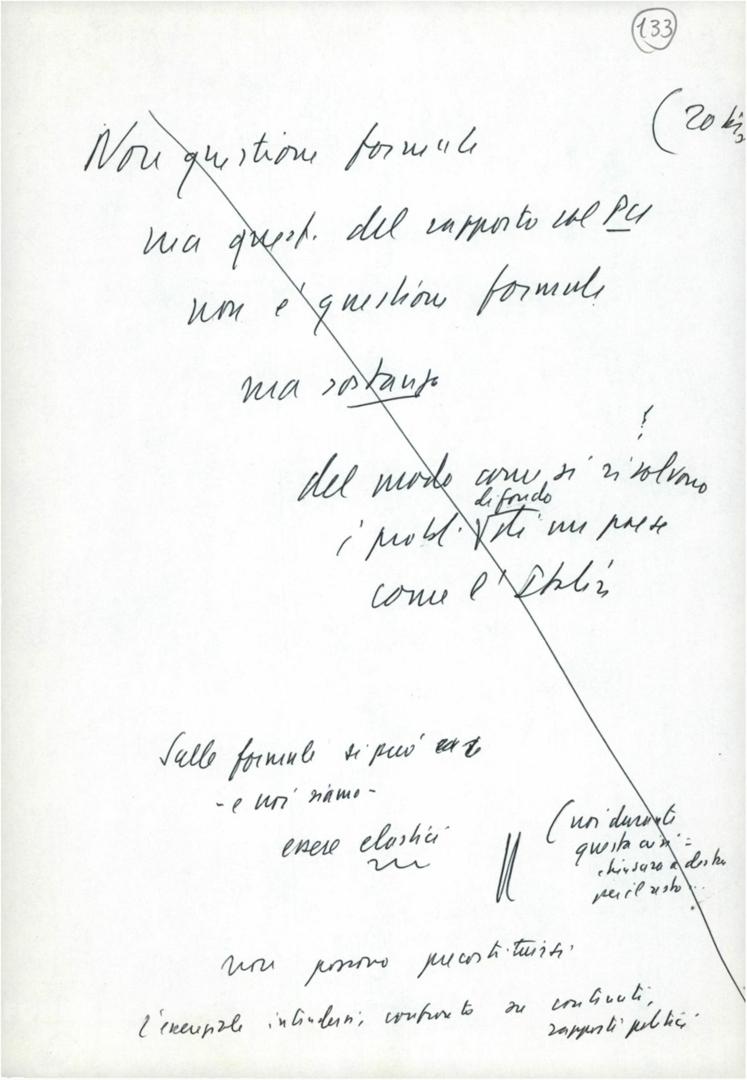 133
(20 bis
Non questione formule
ma quest. del rapporto col PCI
non è questione formule
ma sostanza
del modo come si risolvono
di fondo
i probl. di un paese
come l'Italia
Sulle formule si può
- e noi siamo -
essere elastici
(noi durante
questa crisi =
chiusura a destra
per il resto...
non possono precostituirsi
l'essenziale intendersi, confronto su contenuti,
rapporti politici